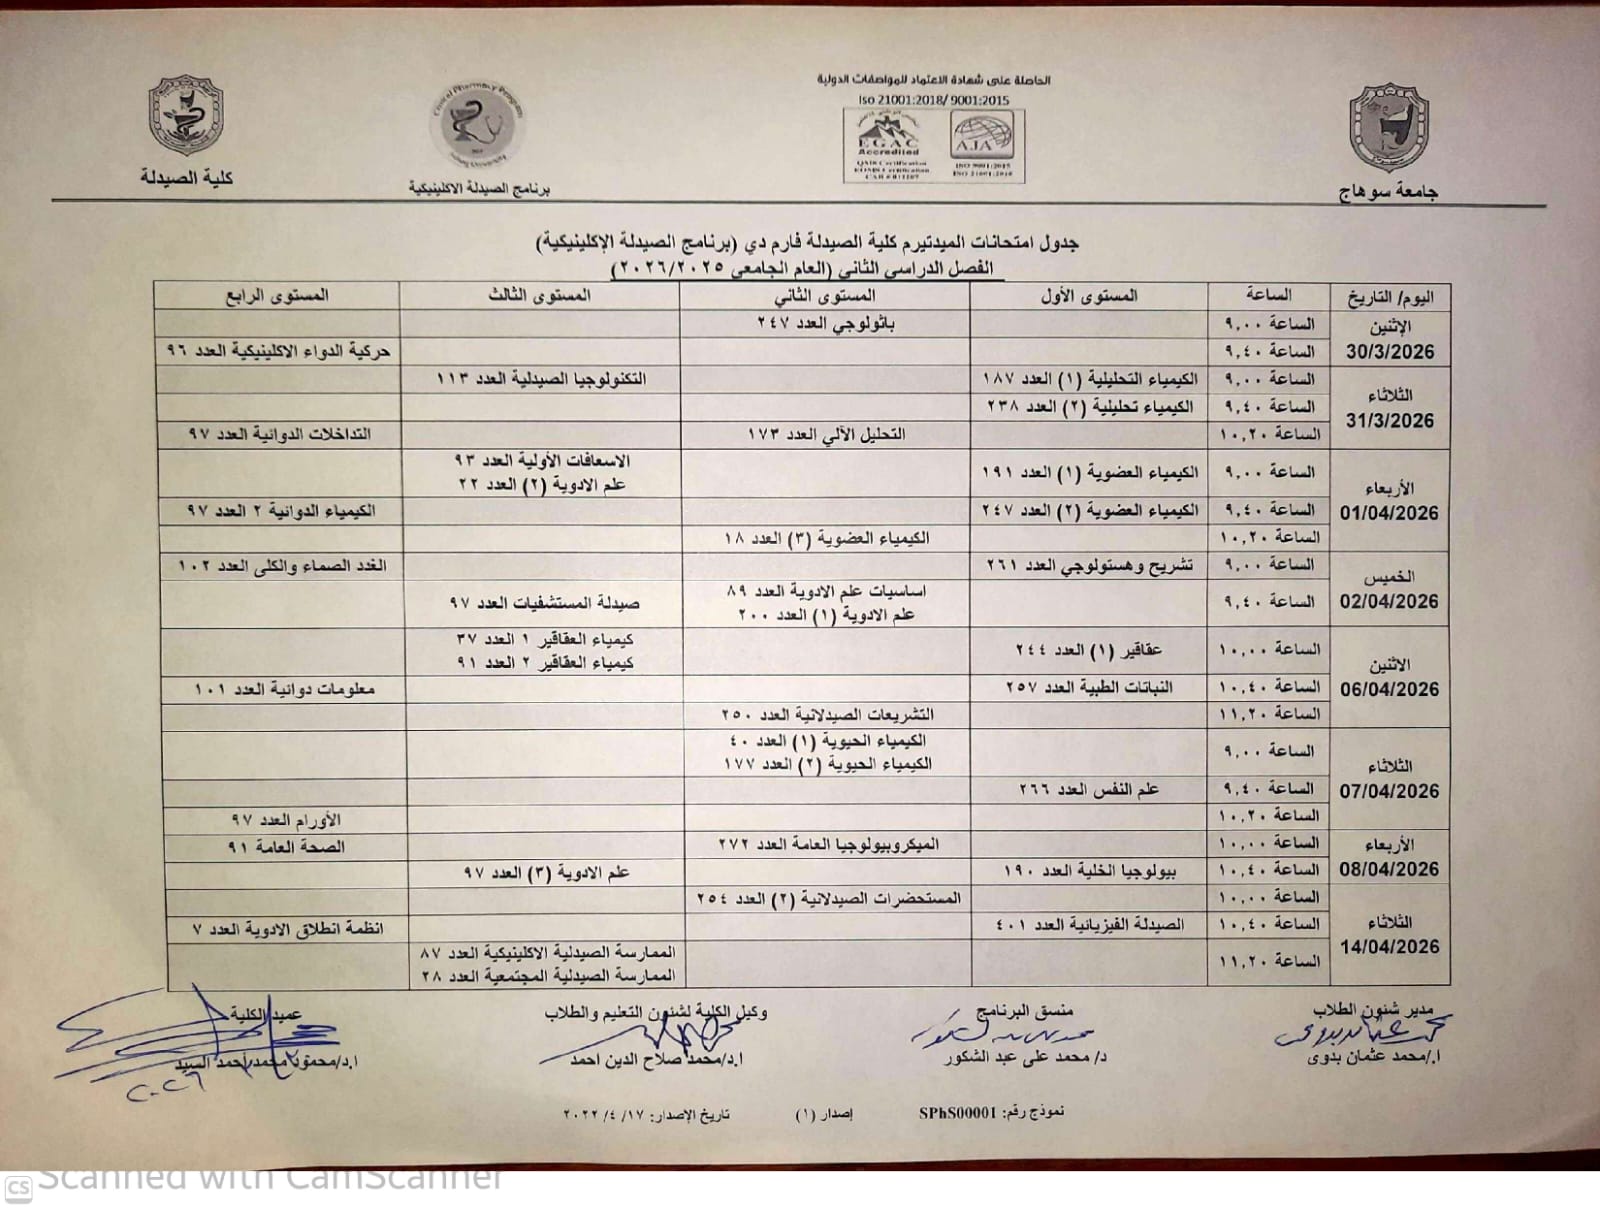 الحاصلة على شهادة الاعتماد للمواصفات الدولية
Iso 21001:2018/ 9001:2015
EGAC
Accredited
AJA
جامعة سوهاج
برنامج الصيدلة الاكلينيكية
كلية الصيدلة
جدول امتحانات الميدتيرم كلية الصيدلة فارم دي (برنامج الصيدلة الإكلينيكية)
الفصل الدراسي الثاني (العام الجامعي ٢٠٢٦/٢٠٢٥)
اليوم/ التاريخ الساعة المستوى الأول المستوى الثاني المستوى الثالث المستوى الرابع
الإثنين 30/3/2026
الساعة ٩,٠٠ باثولوجي العدد ٢٤٧
الساعة ٩,٤٠ حركية الدواء الاكلينيكية العدد ٩٦
الثلاثاء 31/3/2026
الساعة ٩,٠٠ الكيمياء التحليلية (١) العدد ١٨٧ التكنولوجيا الصيدلية العدد ١١٣
الساعة ٩,٤٠ الكيمياء تحليلية (٢) العدد ٢٣٨
الساعة ١٠,٢٠ التحليل الآلي العدد ١٧٣ التداخلات الدوائية العدد ٩٧
الأربعاء 01/04/2026
الساعة ٩,٠٠ الكيمياء العضوية (١) العدد ١٩١ الاسعافات الأولية العدد ٩٣
علم الادوية (٢) العدد ٢٢
الساعة ٩,٤٠ الكيمياء العضوية (٢) العدد ٢٤٧ الكيمياء الدوائية ٢ العدد ٩٧
الساعة ١٠,٢٠ الكيمياء العضوية (٣) العدد ١٨
الخميس 02/04/2026
الساعة ٩,٠٠ تشريح وهستولوجي العدد ٢٦١ الغدد الصماء والكلى العدد ١٠٢
الساعة ٩,٤٠ اساسيات علم الادوية العدد ٨٩ صيدلة المستشفيات العدد ٩٧
علم الادوية (١) العدد ٢٠٠
الاثنين 06/04/2026
الساعة ١٠,٠٠ عقاقير (١) العدد ٢٤٤ كيمياء العقاقير ١ العدد ٣٧
كيمياء العقاقير ٢ العدد ٩١
الساعة ١٠,٤٠ النباتات الطبية العدد ٢٥٧ معلومات دوائية العدد ١٠١
الساعة ١١,٢٠ التشريعات الصيدلانية العدد ٢٥٠
الثلاثاء 07/04/2026
الساعة ٩,٠٠ الكيمياء الحيوية (١) العدد ٤٠
الكيمياء الحيوية (٢) العدد ١٧٧
الساعة ٩,٤٠ علم النفس العدد ٢٦٦
الساعة ١٠,٢٠ الأورام العدد ٩٧
الأربعاء 08/04/2026
الساعة ١٠,٠٠ الميكروبيولوجيا العامة العدد ٢٧٢ الصحة العامة ٩١
الساعة ١٠,٤٠ بيولوجيا الخلية العدد ١٩٠ علم الادوية (٣) العدد ٩٧
الثلاثاء 14/04/2026
الساعة ١٠,٠٠ المستحضرات الصيدلانية (٢) العدد ٢٥٤
الساعة ١٠,٤٠ الصيدلة الفيزيائية العدد ٤٠١ انظمة انطلاق الادوية العدد ٧
الساعة ١١,٢٠ الممارسة الصيدلية الاكلينيكية العدد ٨٧
الممارسة الصيدلية المجتمعية العدد ٢٨
مدير شئون الطلاب منسق البرنامج وكيل الكلية لشئون التعليم والطلاب عميد الكلية
ا./محمد عثمان بدوى د/ محمد على عبد الشكور ا.د/محمد صلاح الدين احمد ا.د/محمود محمد أحمد السيد
٢٠٢٦
نموذج رقم: SPhS00001 إصدار (١) تاريخ الإصدار: ١٧/ ٤/ ٢٠٢٢
CS Scanned with CamScanner